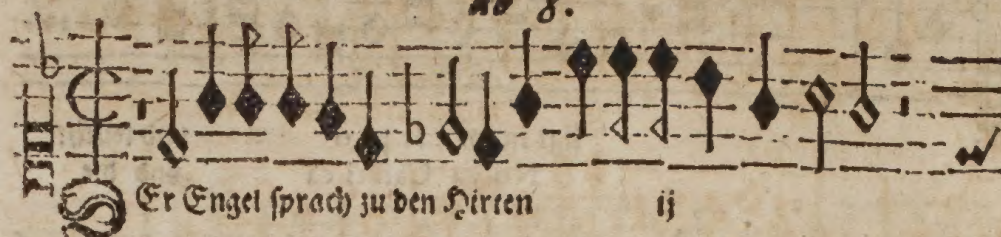 ab 8.
DEr Engel ſprach zu den Hirten ij